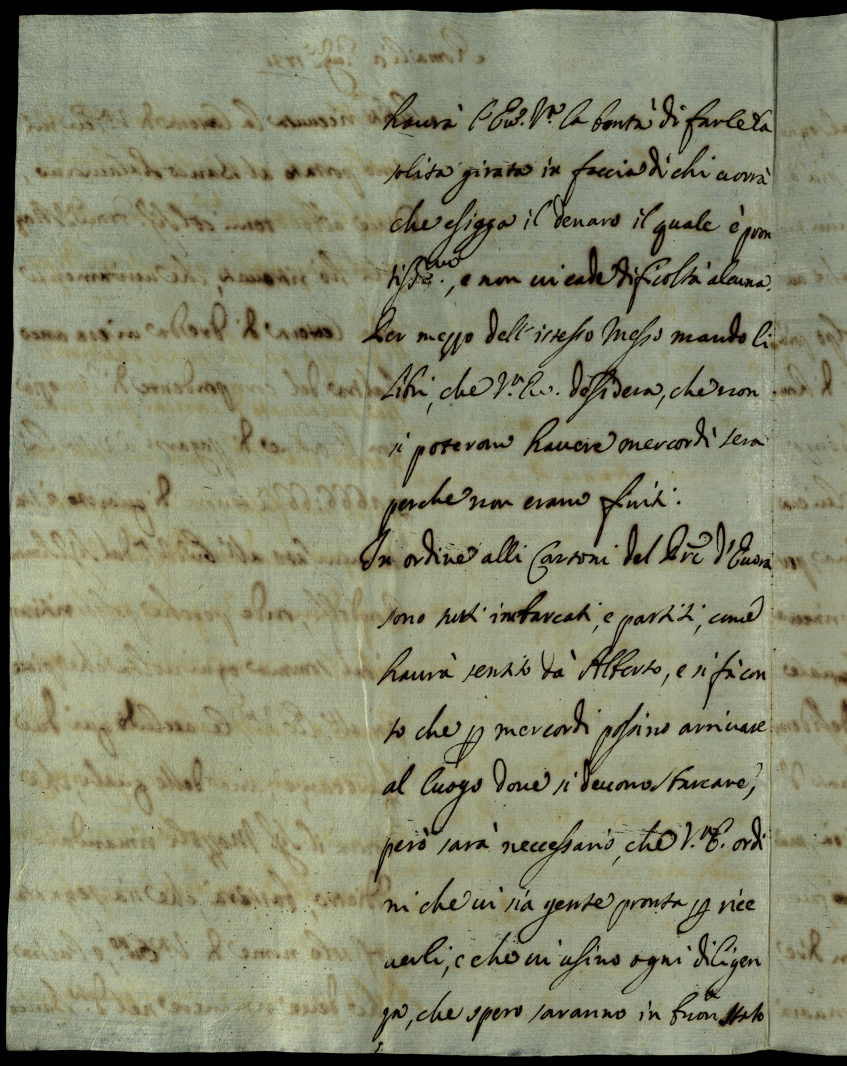 haurà l'Em. V.ra la bontà di farle la
solita girata in faccia di chi vorrà
che esigga il denaro il quale è pron
tiss.mo, e non vi cade dificoltà alcuna.
Per mezzo dell'istesso Messo mando li
libri, che V.ra Em. dessidera, che non
si poterono havere mercordì sera
perche non erano finiti.
In ordine alli Cartoni del d'Evora
sono tutti imbarcati, e partiti, come
haurà sentito dà Alberto, e si fà con
to che p mercordì possino arrivare
al luogo dove si devono sbarcare,
però sarà neccessario, che V.ra E. ordi
ni che vi sia gente pronta p rice
verli, e che vi usino ogni diligen
za, che spero saranno in buon stato